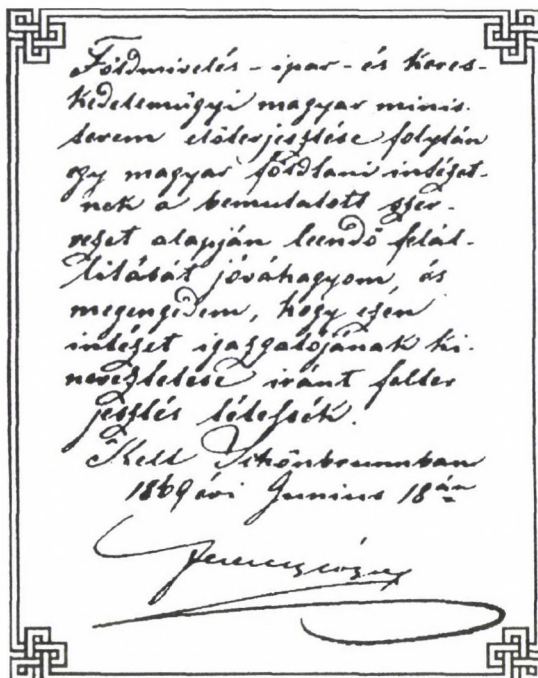 Földmivelés - ipar - és keres-
kedelemügyi magyar minis-
terem előterjesztése folytán
egy magyar földtani intézet-
nek a bemutatott szer-
vezet alapján leendő felál-
litását jóváhagyom, és
megengedem, hogy ezen
intézet igazgatójának ki-
neveztetése iránt felter
jesztés tétessék.
Kelt Schönbrunnban
1869 évi Junius 18án
Ferencz József